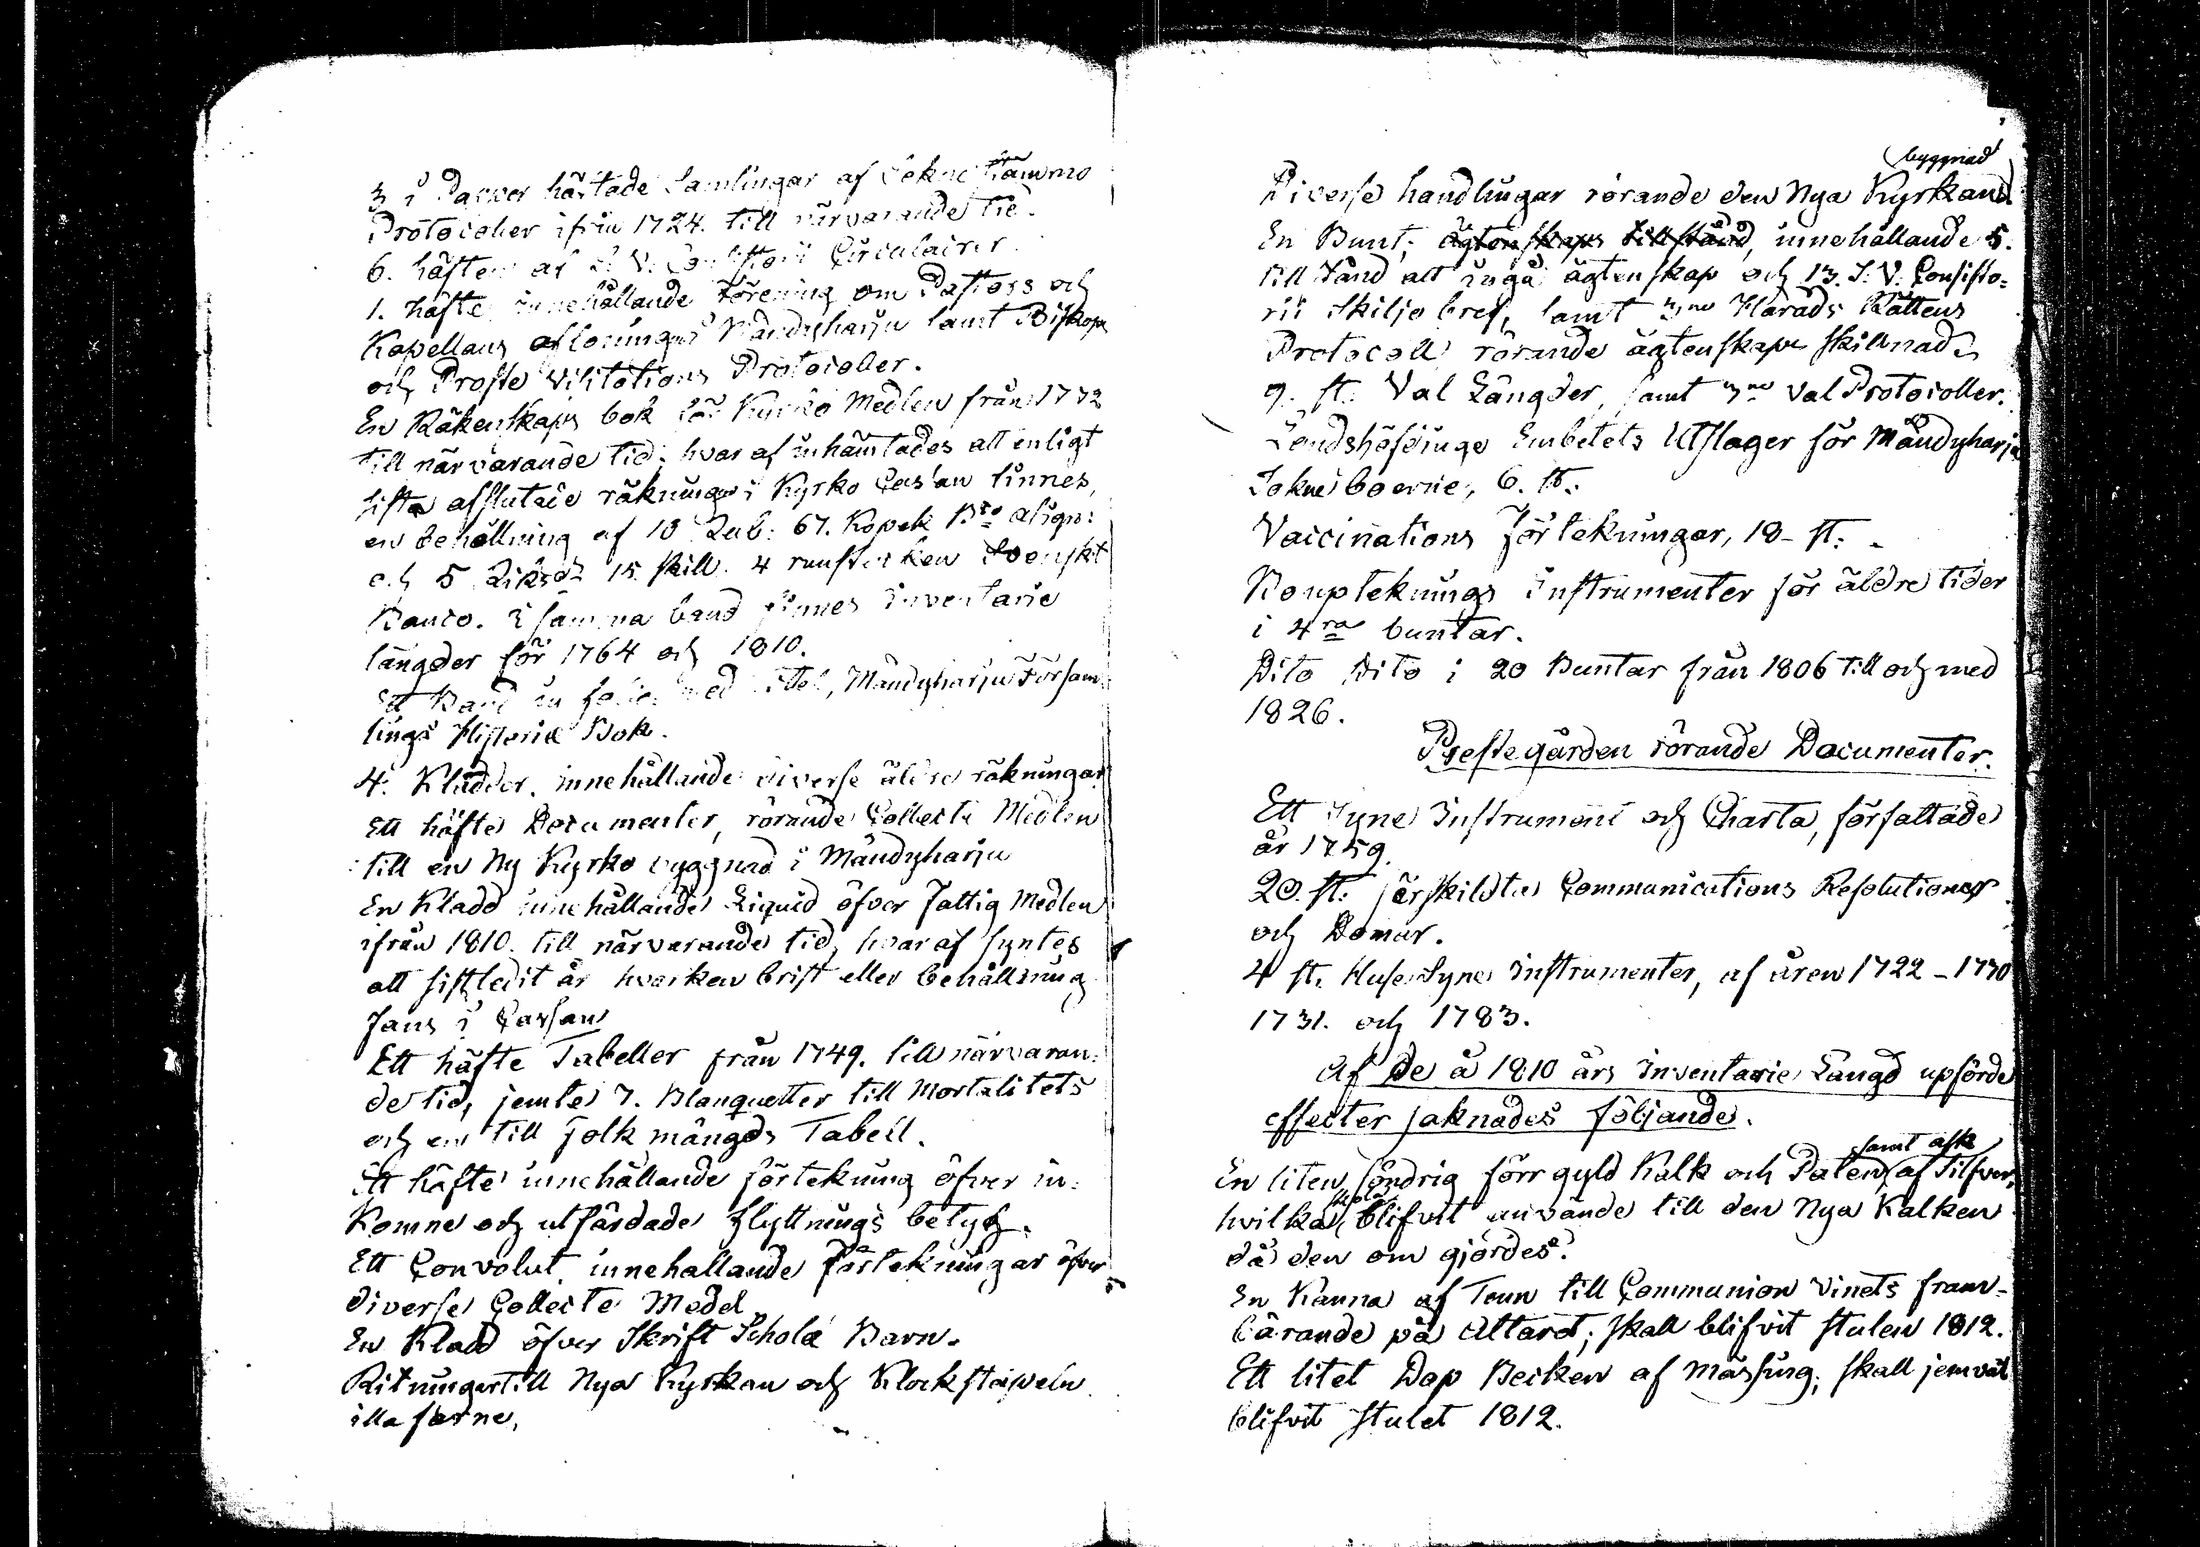 3 i Papper häftade Samlingar af Sokne Stämmo
Protocoller ifrån 1724. till närvarande tid.
6. häften af S. V. Consistorii Circulairer.
1. häfte innehållande Förening om Pastors och
Kapellans aflöningar i Mändyharju samt Biskops
och Proste Visitations Protocoller.
En Räkenskaps bok för Kyrko Medlen från 1772
till närvarande tid; hvaraf inhämtades att enligt
sista afslutade räkningar i Kyrko Cassan finnes,
en behållning af 10 Rub: 67. Kopek Bco Assign:
och 5 Riksdr 15 skill. 4 runstycken Svenskt
Banco. I samma band finnes Inventarie
längder för 1764 och 1810.
Ett Band in folio med titel, Mändyharju Försam-
lings Historie Bok.
4. Kladdor, innehållande diverse äldre räkningar
Ett häfte Documenter, rörande Collecte Medlen
till en Ny Kyrko byggnad i Mändyharju
En Kladd innehållande Liquid öfver Fattig Medlen
ifrån 1810. till närvarande tid, hvaraf syntes
att sistledit år hvarken brist eller behållning
fans i Cassan
Ett häfte Tabeller från 1749. till närvaran-
de tid, jemte 7. Blanquetter till Mortalitets
och en till folk mängds Tabell.
Ett häfte innehållande förtekning öfver in-
komne och utfärdade flyttnings betyg.
Ett Convolut, innehallande Förtekningar öfver
diverse Collecte Medel
En Kladd öfver Skrift Schola Barn.
Ritningar till Nya Kyrkan och Klockstapeln
illa farne.
byggnad
Diverse handlingar rörande den Nya Kyrkans
En Bunt, ägtenskaps tillstånd, innehållande 5.
tillstånd att ingå ägtenskap och 13. S. V. Consisto-
rii skiljobref, samt 3ne Härads Rättens
Protocoll rörande ägtenskaps skillnad.
9. st. Val Längder, samt 3ne Val Protocoller.
Landshöfdinge Embetets Utslager för Mändyharju
Sokneboerne, 6. st.
Vaccinations Förtekningar, 18- st.
Boupteknings Instrumenter för äldre tider
i 4ra buntar.
Dito Dito i 20 Buntar från 1806 till och med
1826.
Prestegården rörande Documenter.
Ett Syne Instrument och Charta, författade
år 1759.
20. st. särskildta Communications Resolutioner
och Domar.
4 st. Huse Syne Instrumenter, af åren 1722 - 1730
1731. och 1783.
Af de å 1810 års Inventarie Längd upförde
effecter saknades följande.
samt ask
En liten söndrig förrgyld Kalk och Paten, af Silfver,
skola
hvilka blifvit använde till den Nya Kalken
då den om gjordes.
En Kanna af Tenn till Communion Vinets fram-
bärande på Altaret; skall blifvit stulen 1812.
Ett litet Dop Becken af Mässing; skall jemväl
blifvit stulet 1812.